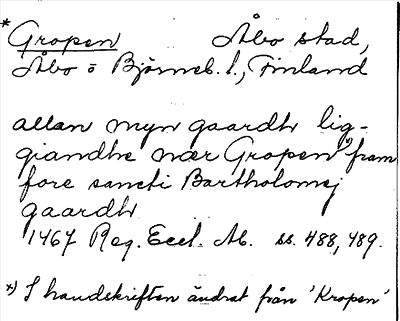 * Gropen Åbo stad,
Åbo o Björneb. l., Finland
allan myn gaardh lig-
giandhe nær Gropen *) fram
fore sancti Bartholomej
gaardh
1467 Reg. Eccl. Ab. ss. 488, 489.
*) I handskriften ändrat från 'Kropen'